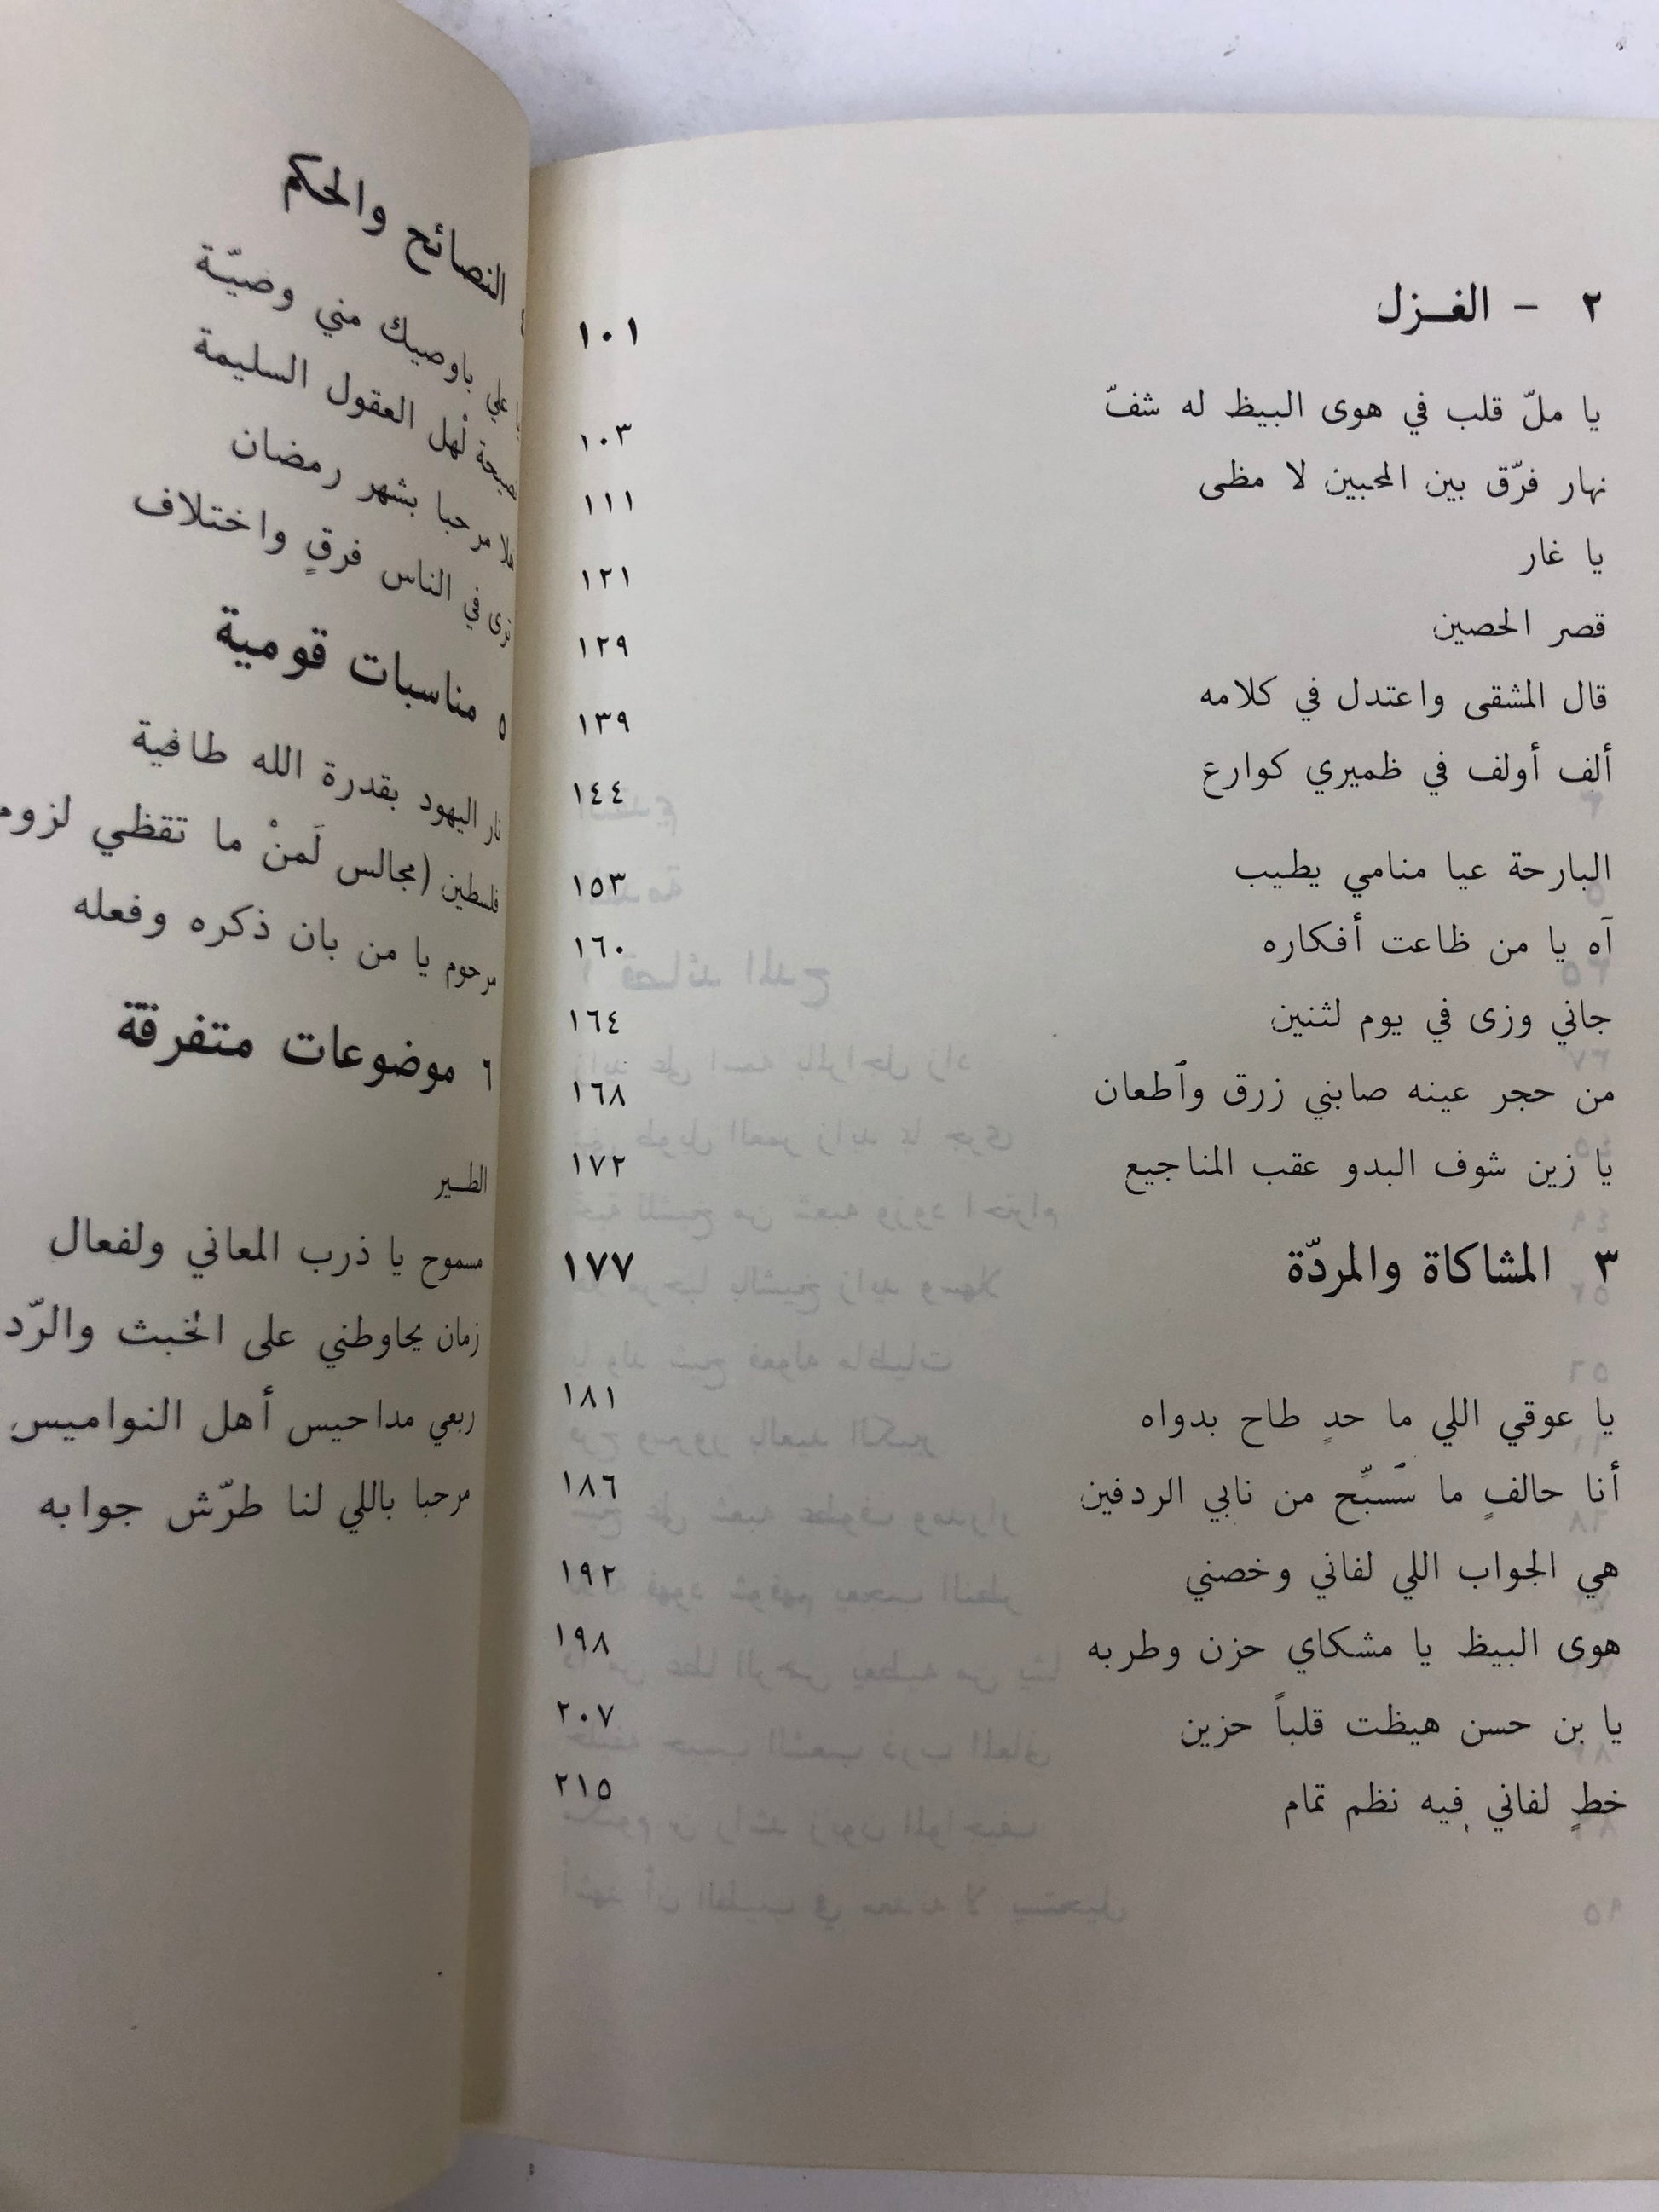 ٢ - الغـزل ١٠١
يا ملّ قلب في هوى البيظ له شفّ ١٠٣
نهار فرّق بين المحبين لا مظى ١١١
يا غار ١٢١
قصر الحصين ١٢٩
قال المشقى واعتدل في كلامه ١٣٩
ألف أولف في ظميري كوارع ١٤٤
البارحة عيا منامي يطيب ١٥٣
آه يا من ظاعت أفكاره ١٦٠
جاني وزى في يوم لثنين ١٦٤
من حجر عينه صابني زرق وآطعان ١٦٨
يا زين شوف البدو عقب المناجيع ١٧٢
٣ المشاكاة والمردّة ١٧٧
يا عوقي اللي ما حدٍ طاح بدواه ١٨١
أنا حالفٍ ما سّسبّح من نابي الردفين ١٨٦
هي الجواب اللي لفاني وخصني ١٩٢
هوى البيظ يا مشكاي حزن وطربه ١٩٨
يا بن حسن هيظت قلباً حزين ٢٠٧
خطٍ لفاني فيه نظم تمام ٢١٥
النصائح والحكم
علي باوصيك مني وصيّة
لْهل العقول السليمة
مرحبا بشهر رمضان
ترى في الناس فرقٍ واختلاف
٥ مناسبات قومية
نار اليهود بقدرة الله طافية
فلسطين (مجالس لَمنْ ما تقظي لزوم
مرحوم يا من بان ذكره وفعله
٦ موضوعات متفرقة
الطـير
مسموح يا ذرب المعاني ولفعال
زمان يحاوطني على الخبث والرّد
ربعي مداحيس أهل النواميس
مرحبا باللي لنا طرّش جوابه